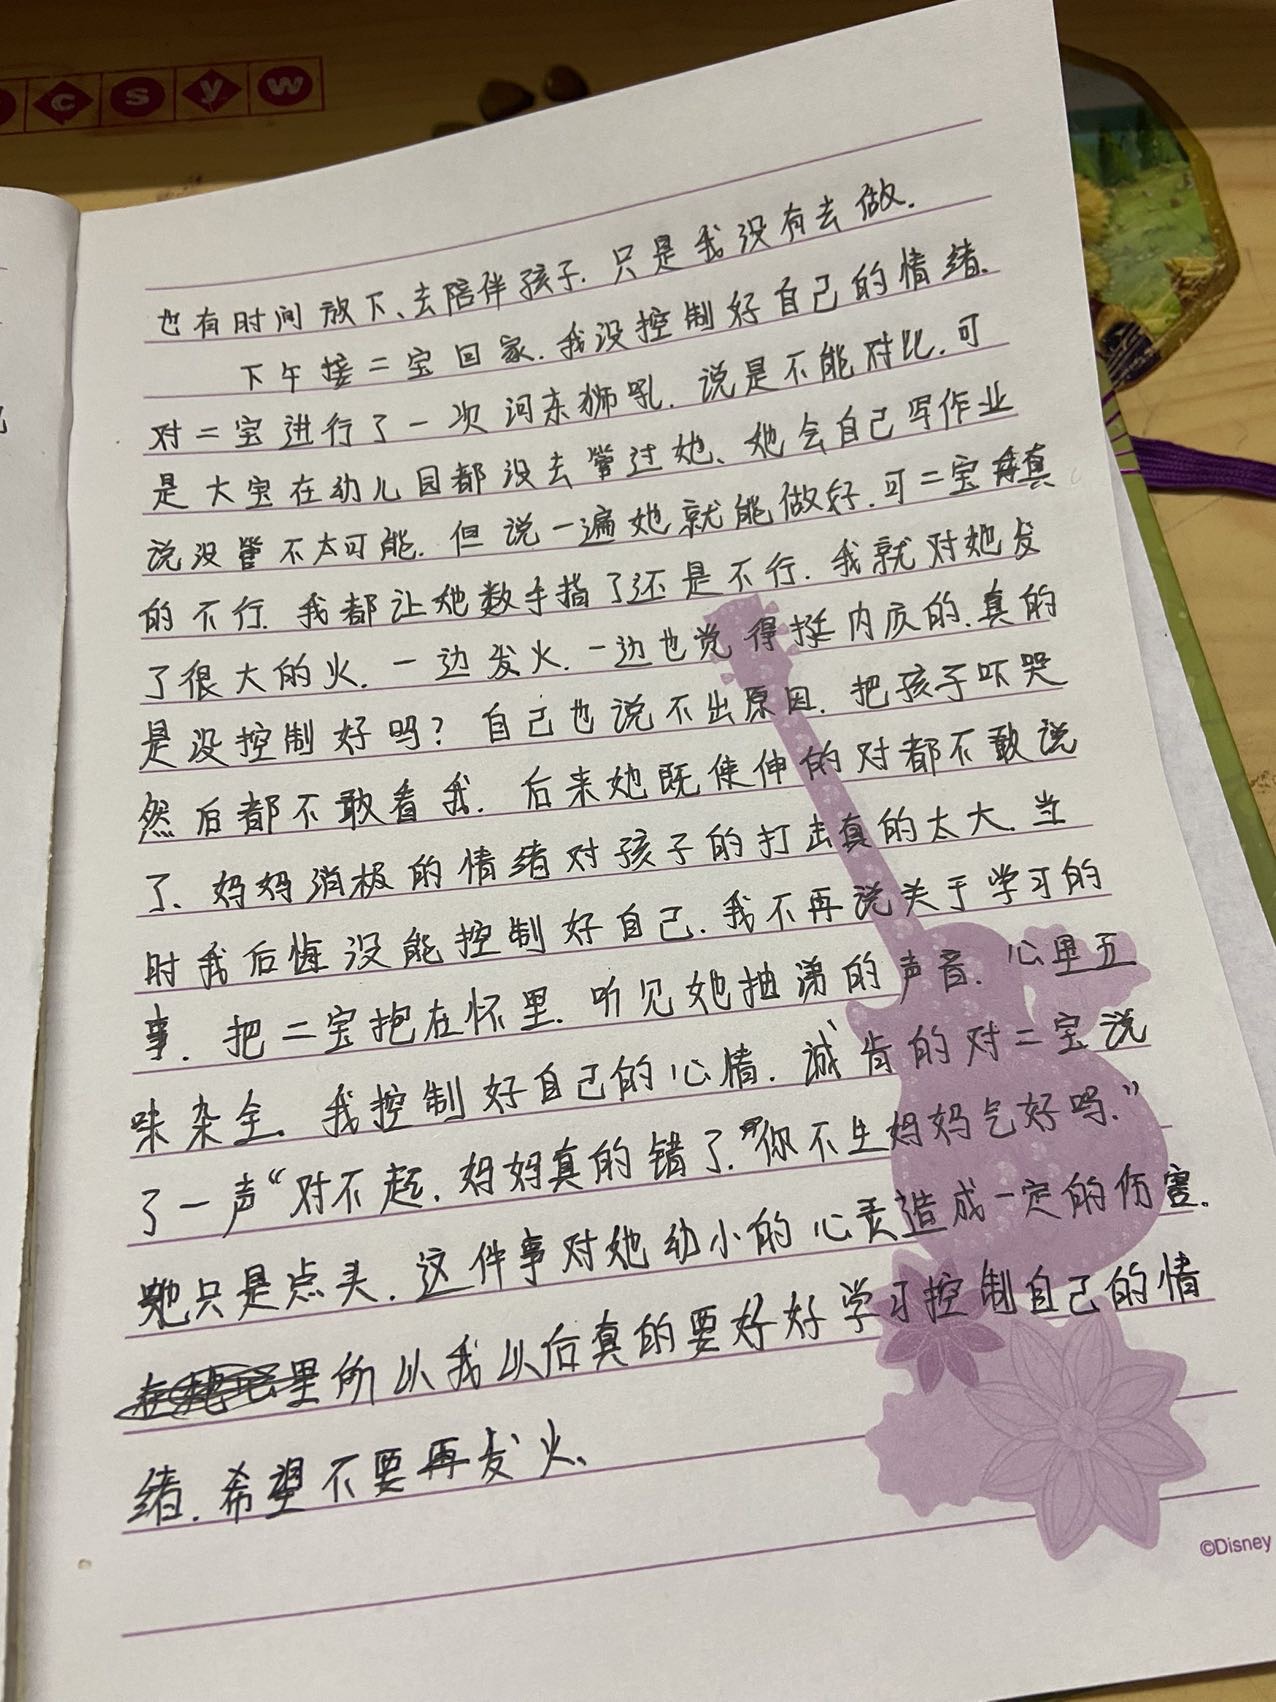 c s y w
也有时间放下、去陪伴孩子.只是我没有去做.
下午接二宝回家.我没控制好自己的情绪.
对二宝进行了一次河东狮吼.说是不能对比.可
是大宝在幼儿园都没去管过她、她会自己写作业
说没管不太可能.但说一遍她就能做好.可二宝真
的不行.我都让她数手指了还是不行.我就对她发
了很大的火.一边发火.一边也觉得挺内疚的.真的
是没控制好吗?自己也说不出原因.把孩子吓哭
然后都不敢看我.后来她既使伸的对都不敢说
了、妈妈消极的情绪对孩子的打击真的太大.当
时我后悔没能控制好自己.我不再说关于学习的
事.把二宝抱在怀里.听见她抽涕的声音.心里五
味杂全、我控制好自己的心情.诚肯的对二宝说
了一声“对不起.妈妈真的错了.”你不生妈妈气好吗.”
她只是点头.这件事对她幼小的心灵造成一定的伤害.
里所以我以后真的要好好学习控制自己的情
绪.希望不要再发火、
©Disney